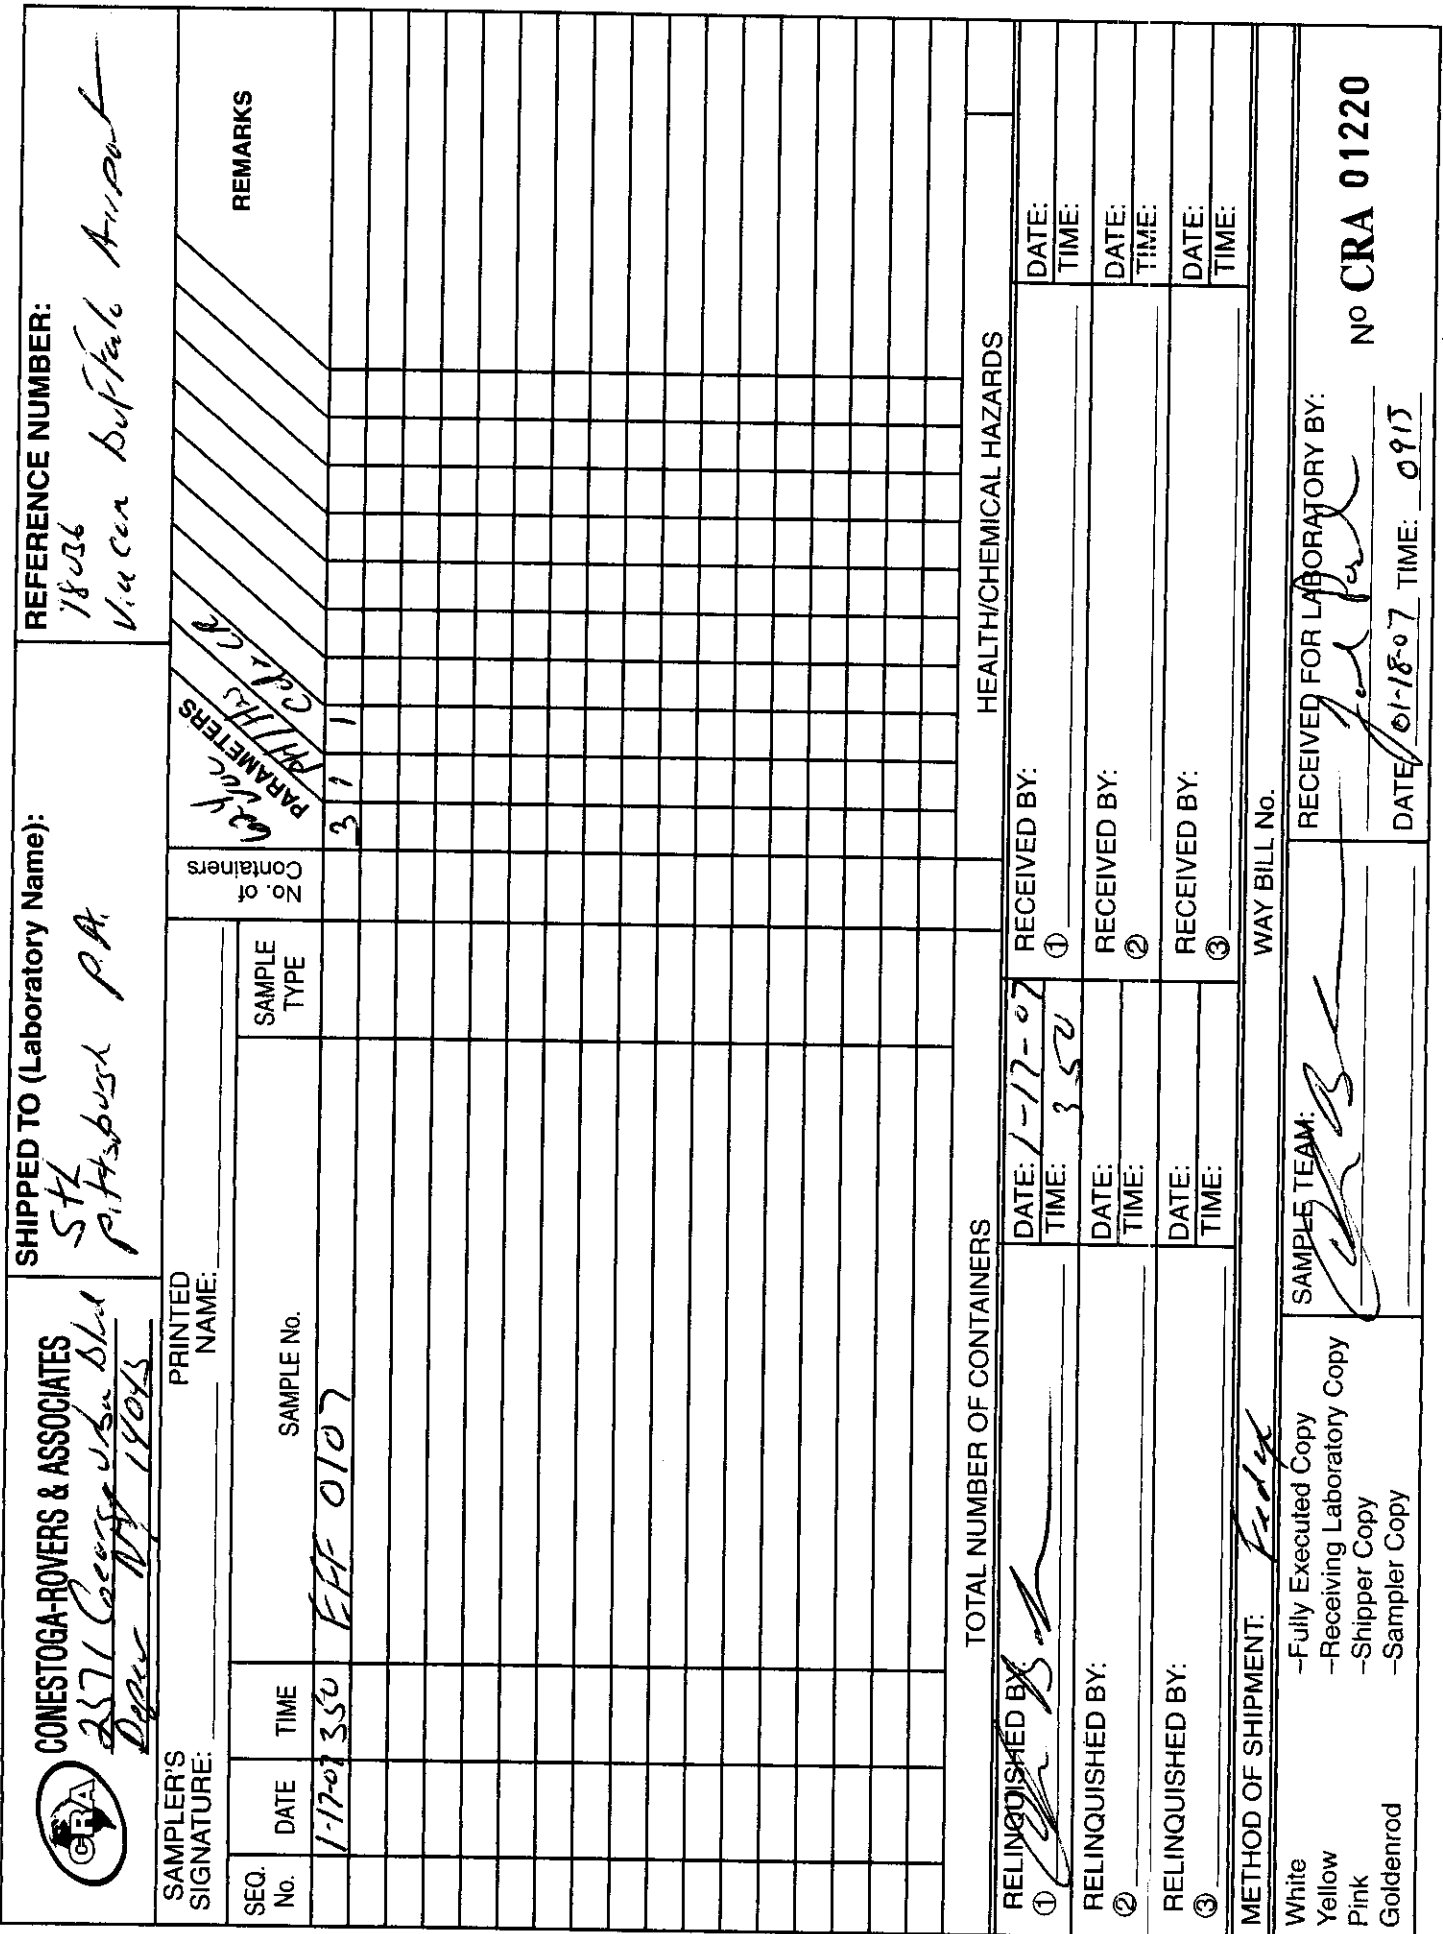 CRA
CONESTOGA-ROVERS & ASSOCIATES
2371 George Urban Blvd
Depew NY 14043
SHIPPED TO (Laboratory Name):
STL
Pittsburgh P.A.
REFERENCE NUMBER:
18036
Buffalo Airport
SAMPLER'S
SIGNATURE:
PRINTED
NAME:
SEQ.
No.
DATE
TIME
SAMPLE No.
SAMPLE
TYPE
No. of
Containers
PARAMETERS
624 VOC
PH /
REMARKS
1-17-07 350 EFF 0107 3 1 1
TOTAL NUMBER OF CONTAINERS
HEALTH/CHEMICAL HAZARDS
RELINQUISHED BY:
①
DATE: 1-17-07
TIME: 350
RECEIVED BY:
①
DATE:
TIME:
RELINQUISHED BY:
②
DATE:
TIME:
RECEIVED BY:
②
DATE:
TIME:
RELINQUISHED BY:
③
DATE:
TIME:
RECEIVED BY:
③
DATE:
TIME:
METHOD OF SHIPMENT: Fedex
WAY BILL No.
White –Fully Executed Copy
Yellow –Receiving Laboratory Copy
Pink –Shipper Copy
Goldenrod –Sampler Copy
SAMPLE TEAM:
RECEIVED FOR LABORATORY BY:
DATE: 01-18-07 TIME: 0915
Nº CRA 01220